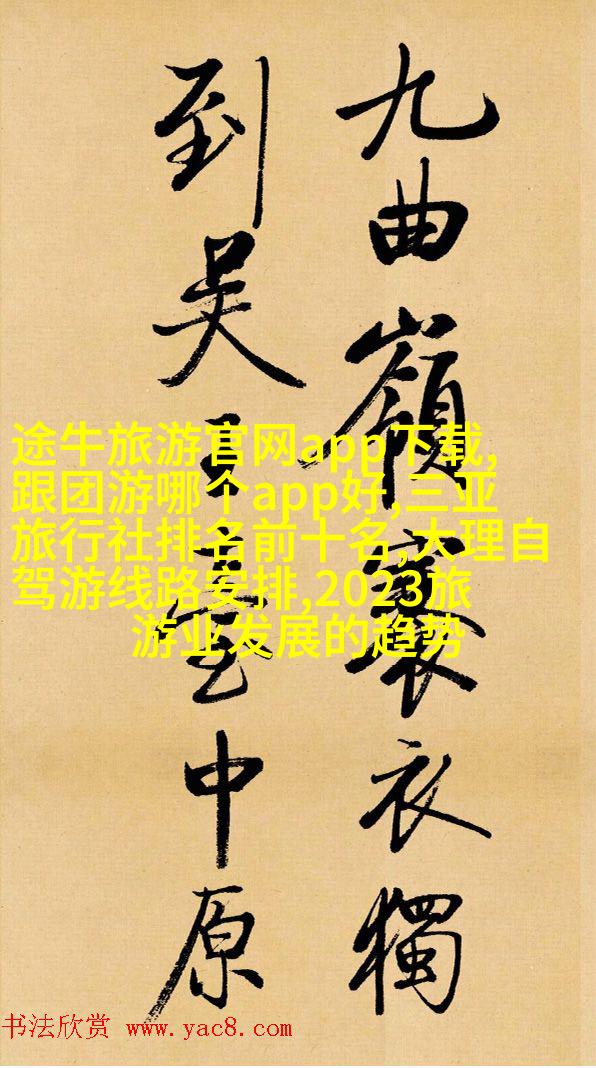 九曲嶺褰衣獨
到吴王臺中原
途牛旅游官网app下载,
跟团游哪个app好,三亚
旅行社排名前十名,大理自
驾游线路安排,2023旅
游业发展的趋势
书法欣赏 www.yac8.com